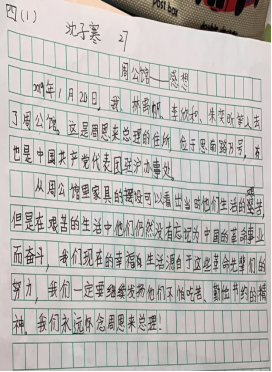 POST BOX
四(1)
沈子寒 27
周公馆——感想
2019年1月20日,我、林雨帆、李欣、朱等人去
了周公馆。这是周恩来总理的住所,位于思南路73号,有
也是中国共产党代表团驻沪办事处。
从周公馆里家具的摆设可以看出当时他们生活的艰苦,
但是在艰苦的生活中他们仍然没有忘记为中国的革命事业
而奋斗,我们现在的幸福生活源自于这些革命先辈们的
努力,我们一定要继续发扬他们不怕吃苦、勤俭节约的精
神。我们永远怀念周恩来总理!